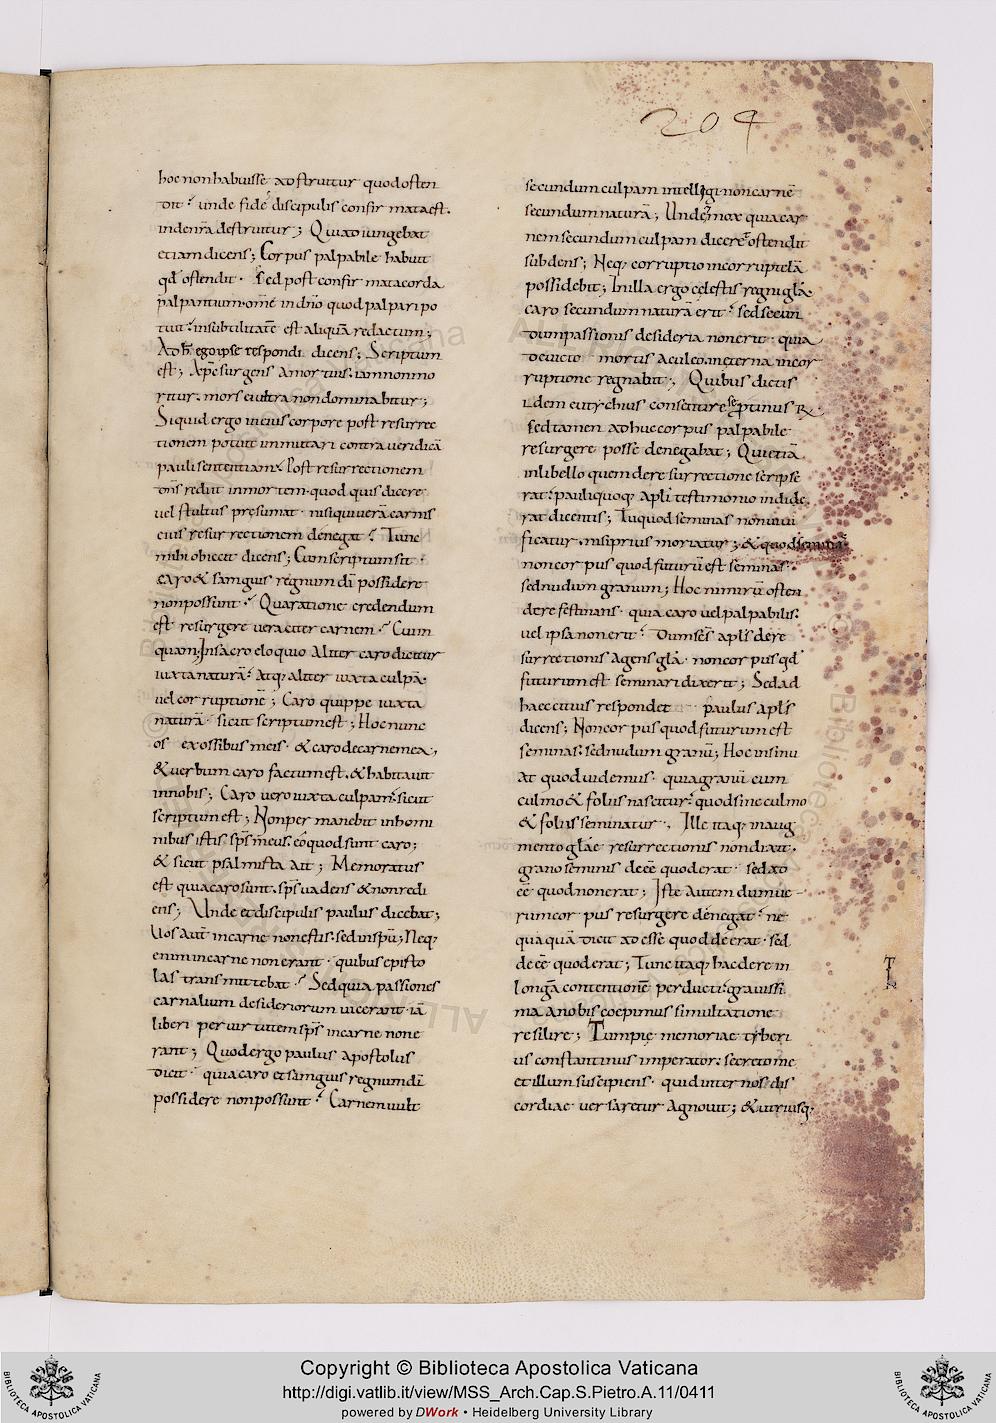 204
hoc non habuisse adstruitur quod osten
dit; unde fidẽ discipulis confirmata est.
inde nr̃a destruitur; Qui adiungebat
etiam dicens; Corpus palpabile habuit
qđ ostendit. Sed post confirmata corda
palpantium. omẽ in dñο quod palpari po
tuit. in subtilitatẽ est aliquã redactum;
Ad h̃ ego ipse respondi dicens; Scriptum
est; Xp̃c surgens a mortuis. iam non mo
ritur. mors ei ultra non dominabitur;
Siquid ergo in eius corpore post resurrec
tionem potuit inmutari contra veridicã
pauli sententiam. Post resurrectionem
dñs rediit in mortem. quod quis dicere
vel stultus presumat. nisi qui verã carnis
eius resurrectionem denegat? Tunc
mihi obiecit dicens; Cum scriptum sit.
caro & sanguis regnum dĩ possidere
non possunt? Qua ratione credendum
est resurgere veraciter carnem? Cui in
quam; In sacro eloquio aliter caro dicitur
iuxta naturã. atq; aliter iuxta culpã.
vel corruptionẽ; Caro quippe iuxta
naturã. sicut scriptum est; Hoc nunc
os ex ossibus meis. & caro de carne mea,
& verbum caro factum est. & habitavit
in nobis; Caro vero iuxta culpam. sicut
scriptum est; Non permanebit in homi
nibus istis sps̃ meus. eo quod sunt caro;
& sicut psalmista ait; Memoratus
est quia caro sunt. sps̃ vadens & non redi
ens; Unde et discipulis paulus dicebat;
Uos aut̃ in carne non estis. sed in spũ; Neq;
enim in carne non erant. quibus episto
las transmittebat? Sed quia passiones
carnalium desideriorum vicerant. iã
liberi per virtutem sps̃ in carne non e
rant; Quod ergo paulus apostolus
dicit. quia caro et sanguis regnum dĩ
possidere non possunt? Carnem vult
secundum culpam intelligi non carnẽ
secundum naturã; Unde & mox quia car
nem secundum culpam diceret ostendit
subdens; Neq; corruptio incorruptelã
possidebit; In illa ergo celestis regni gl̃a.
caro secundum naturã erit. sed secun
dum passionis desideria non erit. quia
devicto mortis aculeo in eterna incor
ruptione regnabit; Quibus dictis
idem eutychius consentire se protinus R.
sed tamen adhuc corpus palpabile
resurgere posse denegabat; Qui etiã
in libello quem de resurrectione scripse
rat. pauli quoq; apl̃i testimonio indide
rat dicentis; Tu quod seminas non vivi
ficatur. nisi prius moriatur; & quod seminas
non corpus quod futurũ est seminas.
sed nudum granum; Hoc nimirũ osten
dere festinans. quia caro vel palpabilis.
vel ipsa non erit. dum sc̃s apl̃s de re
surrectionis agens gl̃a. non corpus qđ
futurum est seminari dixerit; Sed ad
haec citius respondet paulus apl̃s
dicens; Non corpus quod futurum est
seminas. sed nudum granũ; Hoc insinu
at quod videmus. quia granũ cum
culmo & foliis nascitur. quod sine culmo
& foliis seminatur. Ille itaq; in aug
mento gl̃ae resurrectionis non dixit.
grano seminis deẽẽ quod erat. sed ad
ẽẽ quod non erat; Iste autem dum ve
rum corpus resurgere denegat. ne
quaquã dicit adesse quod deerat. sed
deẽẽ quod erat; Tunc itaq; hac de re in
longã contentionẽ perducti. gravissi
ma a nobis coepimus simultatione
resilire; Tum pie memoriae tyberi
us constantinus imperator. secreto me
et illum suscipiens. quid inter nos dis
cordiae versaretur agnovit; & utriusq;
Copyright © Biblioteca Apostolica Vaticana
http://digi.vatlib.it/view/MSS_Arch.Cap.S.Pietro.A.11/0411
powered by DWork • Heidelberg University Library
BIBLIOTECA APOSTOLICA VATICANA
BIBLIOTECA APOSTOLICA VATICANA